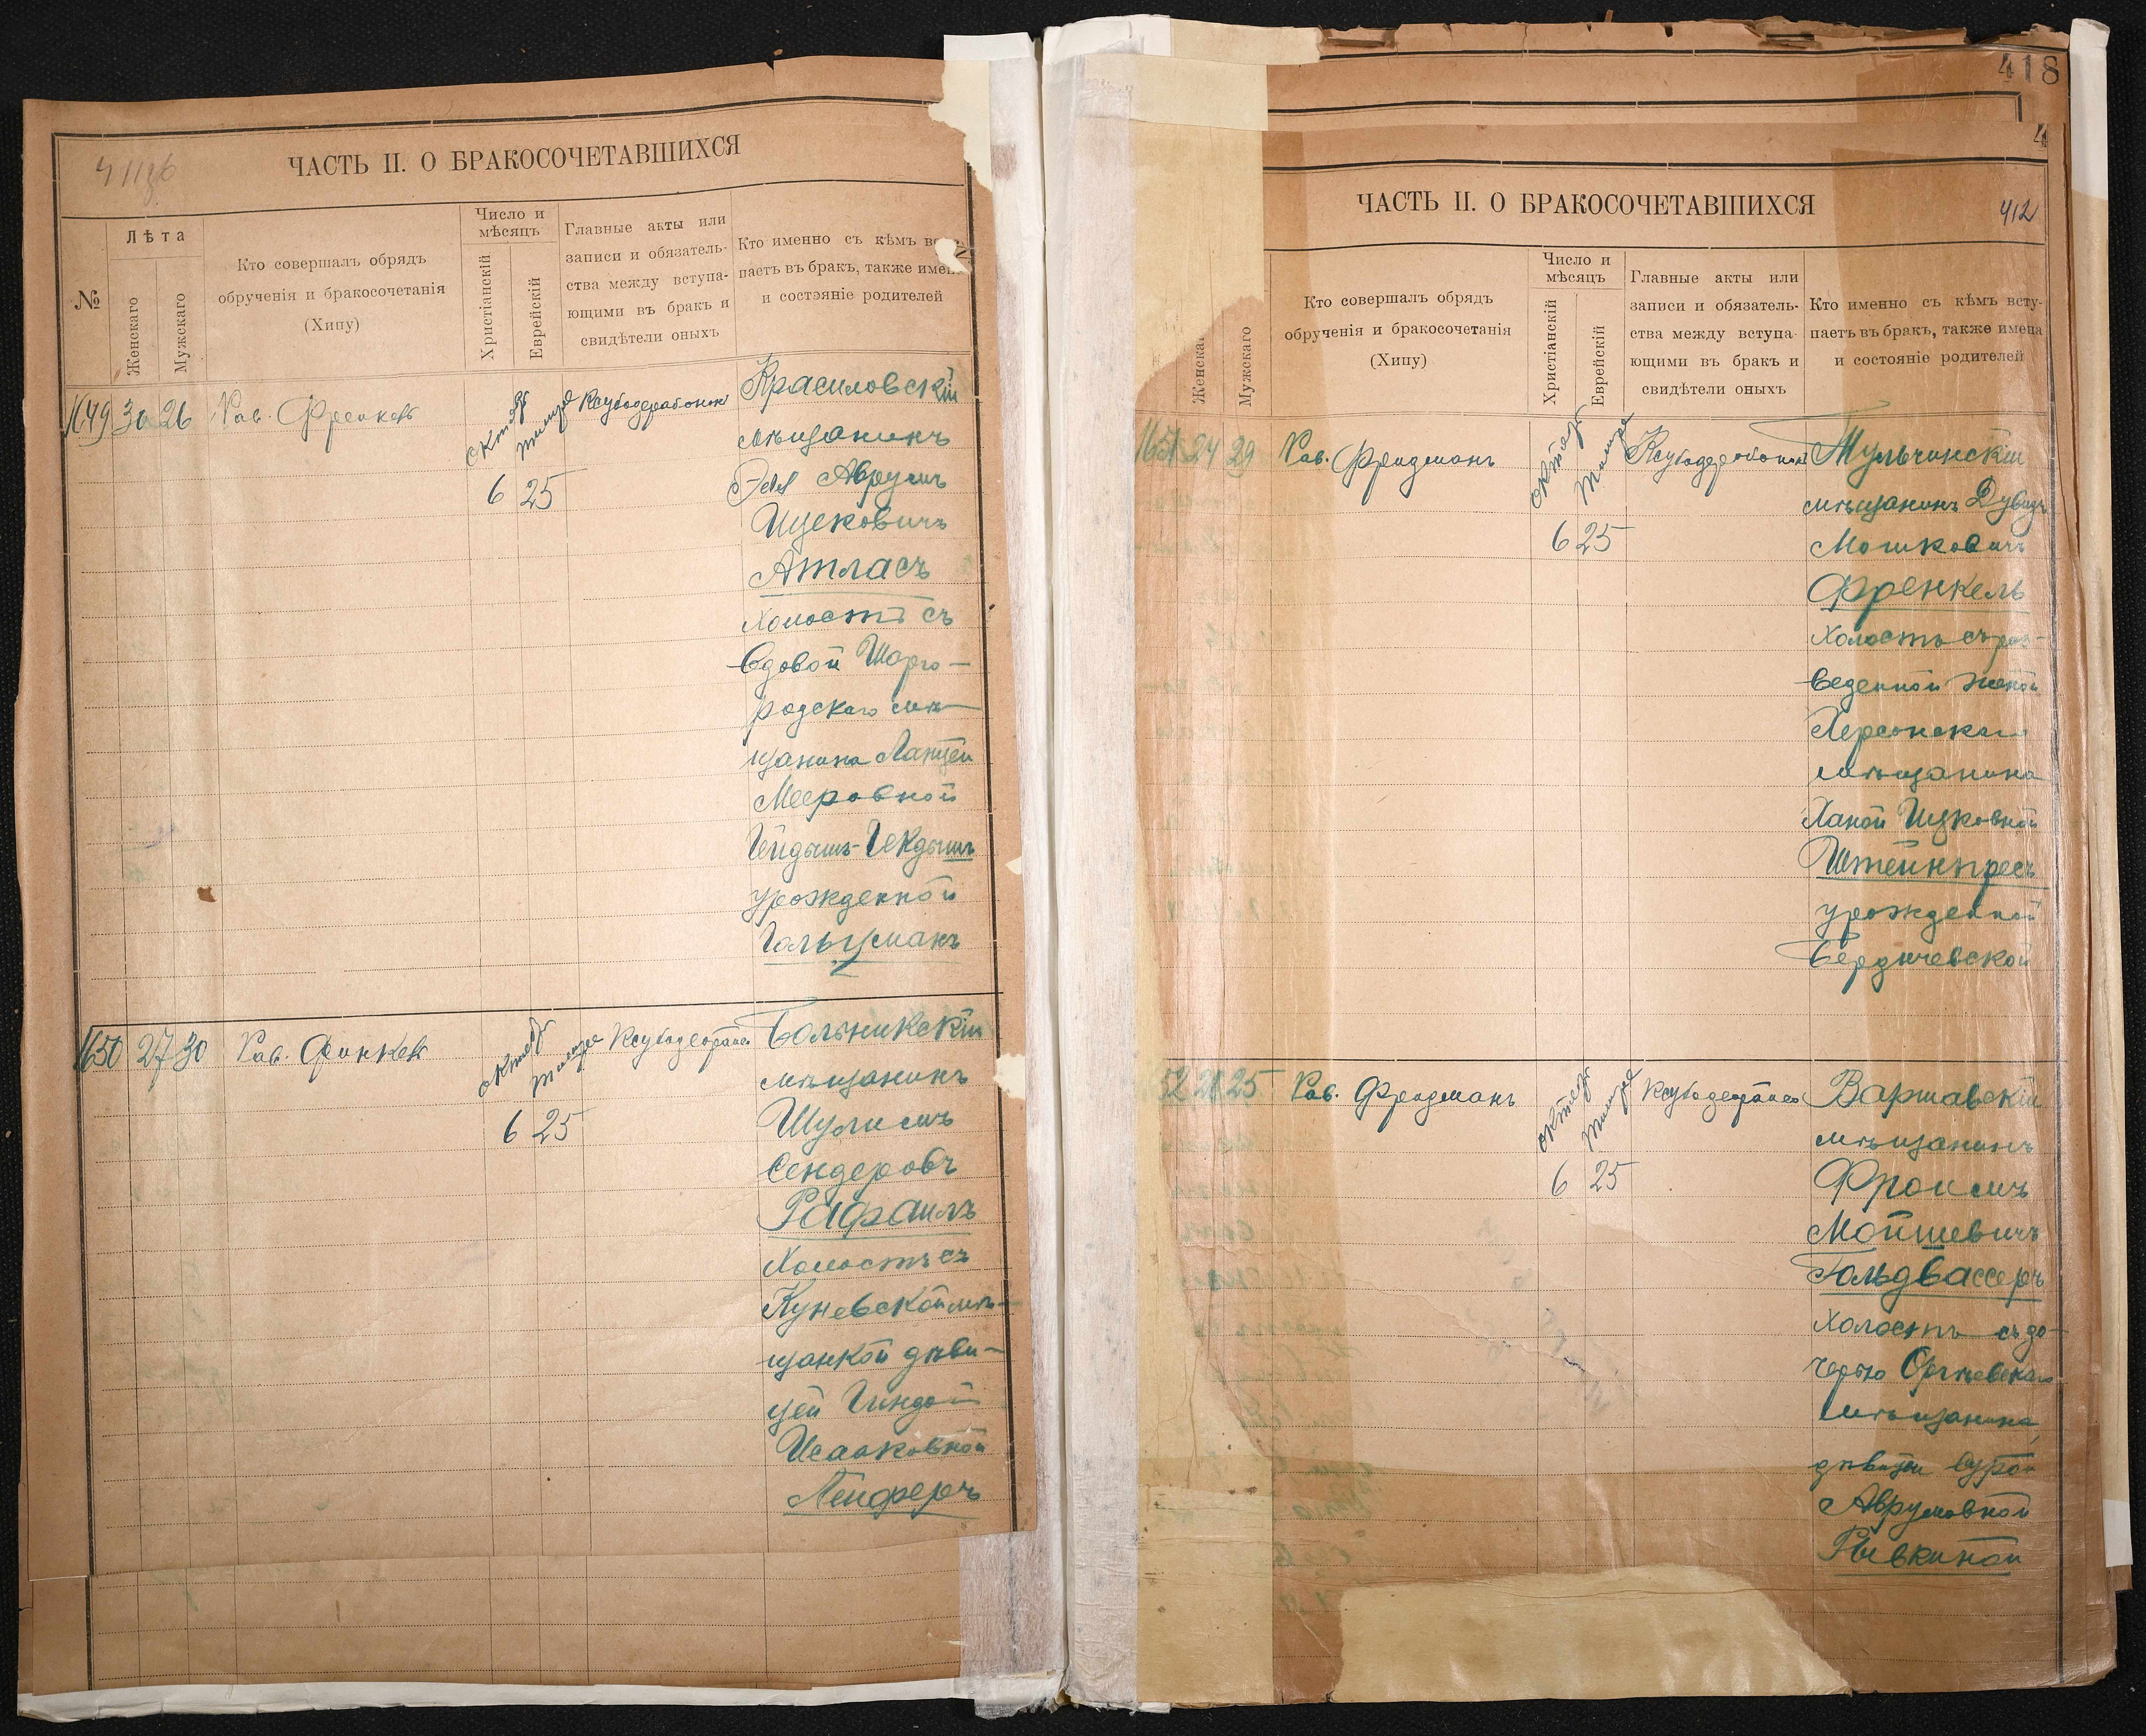 ЧАСТЬ II. О БРАКОСОЧЕТАВШИХСЯ
№
Лѣта
Женскаго
Мужскаго
Кто совершалъ обрядъ
обрученія и бракосочетанія
(Хипу)
Число и
мѣсяцъ
Христіанскій
Еврейскій
Главные акты или
записи и обязатель-
ства между вступа-
ющими въ бракъ и
свидѣтели оныхъ
Кто именно съ кѣмъ
паетъ въ бракъ, также
и состояніе родителей
1649 30 26 Рав.
6 25
Красиловскій
мѣщанинъ
Аврумъ
Ицековичъ
Атласъ
Холостъ съ
вдовой Шарго-
родскаго мѣ-
щанина
Мееровной
урожденной
Гольцманъ
1650 27 30 Рав.
6 25
мѣщанинъ
Шулимъ
Сендеровъ
Рафаилъ
Холостъ съ
Куневской мѣ-
щанкой дѣви-
цей Гиндой
Исааковной
418
4
ЧАСТЬ II. О БРАКОСОЧЕТАВШИХСЯ
412
Женскаго
Мужскаго
Кто совершалъ обрядъ
обрученія и бракосочетанія
(Хипу)
Число и
мѣсяцъ
Христіанскій
Еврейскій
Главные акты или
записи и обязатель-
ства между вступа-
ющими въ бракъ и
свидѣтели оныхъ
Кто именно съ кѣмъ всту-
паетъ въ бракъ, также имена
и состояніе родителей
1651 24 29 Рав. Фридманъ
6 25
Тульчинскій
мѣщанинъ Дувидъ
Мошковичъ
Френкель
Холостъ съ раз-
веденной женой
Херсонскаго
мѣщанина
Ханой Ицковной
Штейнпресъ
урожденной
Бердичевской
52 25 Рав. Фридманъ
6 25
Варшавскій
мѣщанинъ
Фроимъ
Мойшевичъ
Гольдвассеръ
Холостъ съ до-
черью Оргѣевскаго
мѣщанина,
дѣвицей Сурой
Аврумовной
Рывкиной